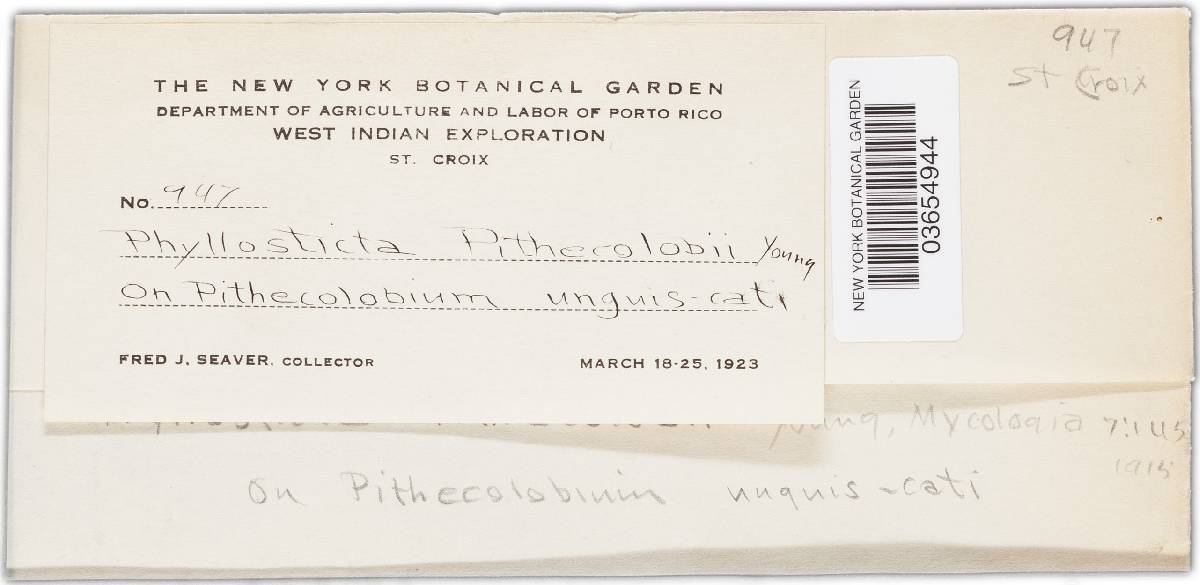 THE NEW YORK BOTANICAL GARDEN
DEPARTMENT OF AGRICULTURE AND LABOR OF PORTO RICO
WEST INDIAN EXPLORATION
ST. CROIX
No. 947
Phyllosticta Pithecolobii Young
On Pithecolobium unguis-cati
FRED J. SEAVER, COLLECTOR MARCH 18-25, 1923
NEW YORK BOTANICAL GARDEN
03654944
947
St Croix
Young, Mycologia 7:145
1915
On Pithecolobium unguis-cati